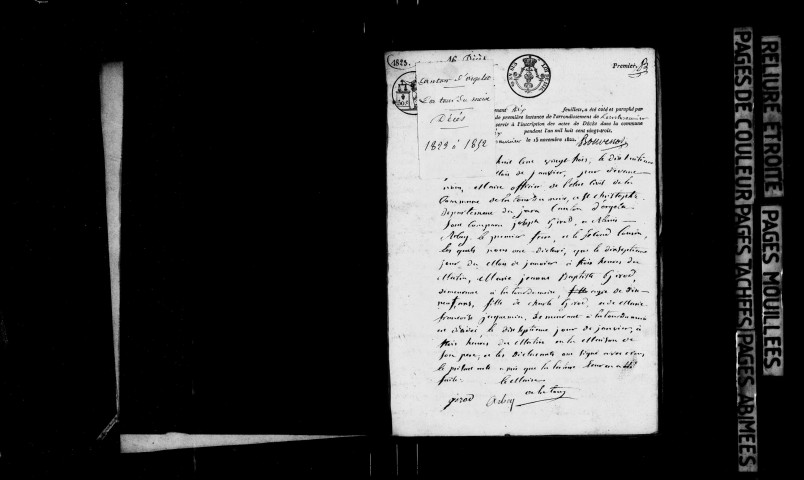 1823.
16 Décès
Premier
Canton d'orgelet
La tour du meix
Décès
1823 à 1832
feuillets, a été coté et paraphé par
de première instance de l'arrondissement de
servir à l'inscription des actes de Décès dans la commune
pendant l'an mil huit cent vingt-trois.
le 15 novembre 1822.
huit cent vingt trois, le dix huitième
mois de janvier, pour devant
nous, Maire officier de l'état civil de la
Commune de la tour du meix, et St christophe
Département du jura Canton d'orgelet
Sont comparu joseph Girod, et
le premier frère, et le second Cousin,
les quels nous ont déclaré, que le dix septième
jour du Mois de janvier à trois heures du
Matin, Marie jeanne Baptiste Girod,
demeurant à la tour du meix, âgée de dix
ans, fille de Girod, et de Marie
françoise jacquemin, demeurant à la tour du meix
est décédé le dix septième jour de janvier, à
trois heures du Matin en la Maison de
Son père, et les Déclarants ont signé avec nous
le présent acte après que la lecture leur en a été
faite. le Maire
girod
RELIURE ETROITE
PAGES MOUILLEES
PAGES DE COULEUR
PAGES TACHEES
PAGES ABIMEES